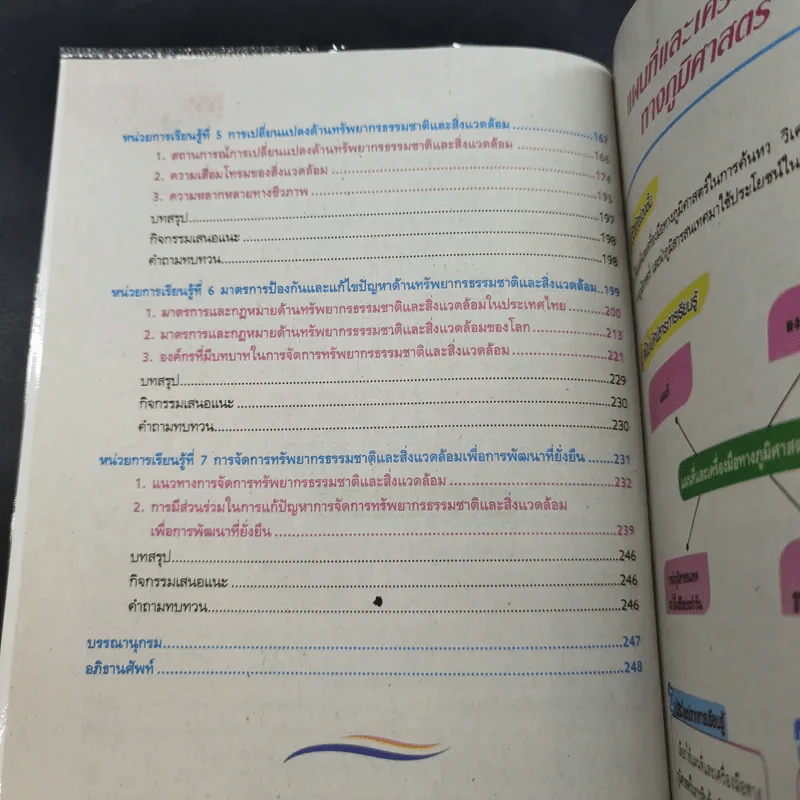 หน่วยการเรียนรู้ที่ 5 การเปลี่ยนแปลงด้านทรัพยากรธรรมชาติและสิ่งแวดล้อม ........ 167
1. สถานการณ์การเปลี่ยนแปลงด้านทรัพยากรธรรมชาติและสิ่งแวดล้อม ........ 168
2. ความเสื่อมโทรมของสิ่งแวดล้อม ........ 174
3. ความหลากหลายทางชีวภาพ ........ 193
บทสรุป ........ 197
กิจกรรมเสนอแนะ ........ 198
คำถามทบทวน ........ 198
หน่วยการเรียนรู้ที่ 6 มาตรการป้องกันและแก้ไขปัญหาด้านทรัพยากรธรรมชาติและสิ่งแวดล้อม..199
1. มาตรการและกฎหมายด้านทรัพยากรธรรมชาติและสิ่งแวดล้อมในประเทศไทย ........ 200
2. มาตรการและกฎหมายด้านทรัพยากรธรรมชาติและสิ่งแวดล้อมของโลก ........ 213
3. องค์กรที่มีบทบาทในการจัดการทรัพยากรธรรมชาติและสิ่งแวดล้อม ........ 221
บทสรุป ........ 229
กิจกรรมเสนอแนะ ........ 230
คำถามทบทวน ........ 230
หน่วยการเรียนรู้ที่ 7 การจัดการทรัพยากรธรรมชาติและสิ่งแวดล้อมเพื่อการพัฒนาที่ยั่งยืน ........ 231
1. แนวทางการจัดการทรัพยากรธรรมชาติและสิ่งแวดล้อม ........ 232
2. การมีส่วนร่วมในการแก้ปัญหาการจัดการทรัพยากรธรรมชาติและสิ่งแวดล้อม
เพื่อการพัฒนาที่ยั่งยืน ........ 239
บทสรุป ........ 246
กิจกรรมเสนอแนะ ........ 246
คำถามทบทวน ........ 246
บรรณานุกรม ........ 247
อภิธานศัพท์ ........ 248
แผนที่และเครื
ทางภูมิศาสตร์
แผนที่และเครื่องมือทางภูมิศาสต